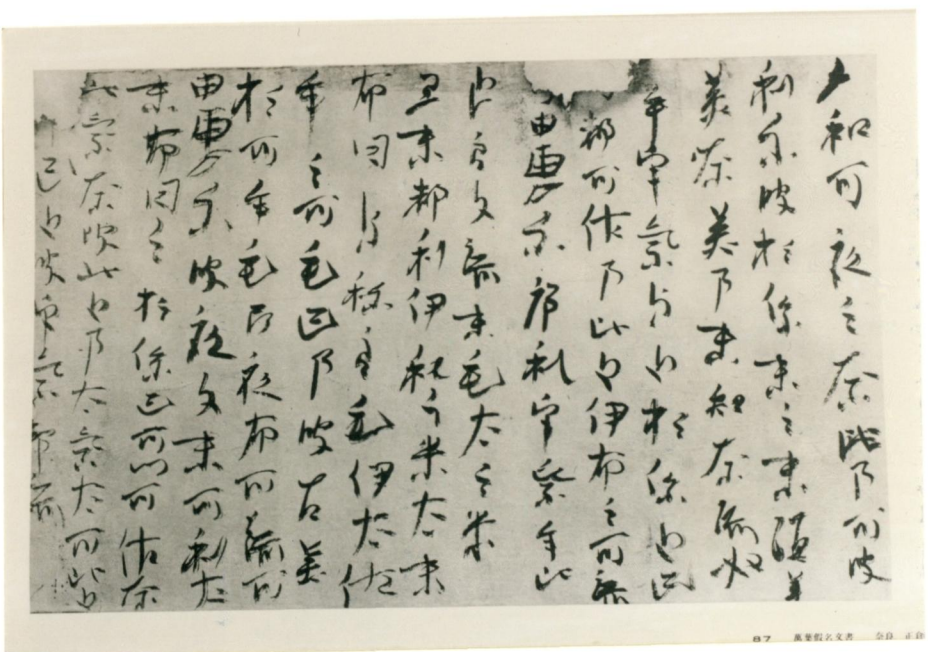 和可夜之奈比乃可波
利尓波於保末之末須
美奈美乃末知奈流奴
乎宇気与止於保止己
都可佐乃比止伊布之可流
由恵尓序礼宇気牟比
止良久流末毛太之米
弖末都利伊礼之米太末
布日与祢良毛伊太佐
牟之可毛己乃波古美
於可牟毛阿夜布可流可
由恵尓波夜久末可利太
末布日之於保己可川可佐奈
比気奈波比止乃太気太可比止
己止波宇気都流
87 萬葉假名文書 奈良 正倉